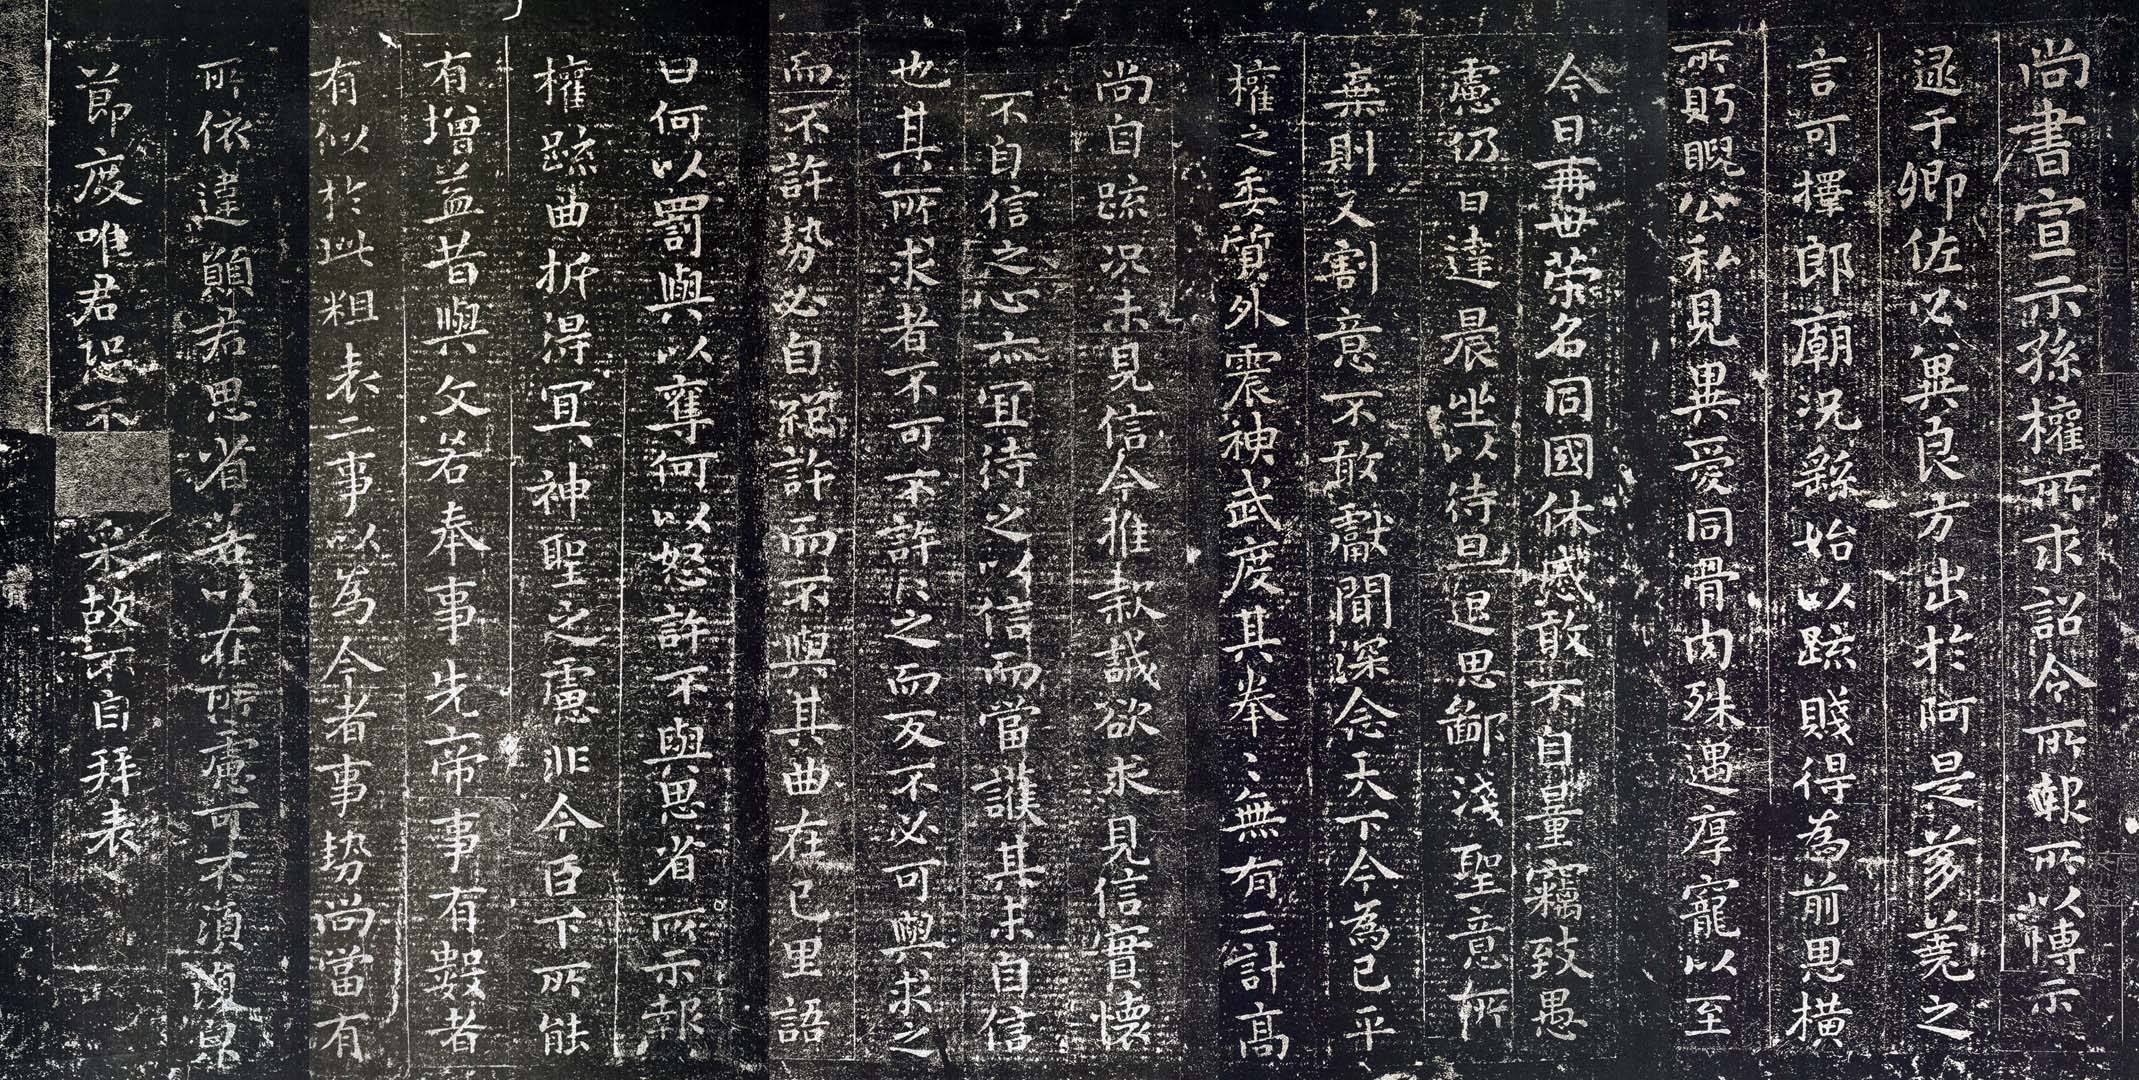 尚書宣示孫權所求詔令所報所以博示
逮于卿佐必異良方出於阿是芻蕘之
言可擇郎廟況繇始以疏賤得為前恩橫
所眄睨公私見異愛同骨肉殊遇厚寵以至
今日再世榮名同國休慼敢不自量竊致愚
慮仍日達晨坐以待旦退思鄙淺聖意所
棄則又割意不敢獻聞深念天下今為已平
權之委質外震神武度其拳〻無有二計高
尚自疏況未見信今推款誠欲求見信實懷
不自信之心亦宜待之以信而當護其未自信
也其所求者不可不許許之而反不必可與求之
而不許勢必自絕許而不與其曲在己里語
曰何以罰與以奪何以怒許不與思省所示報
權疏曲折得宜宜神聖之慮非今臣下所能
有增益昔與文若奉事先帝事有數者
有似於此粗表二事以為今者事勢尚當有
所依違願君思省若以在所慮可不須復皃
節度唯君恐不采故不自拜表